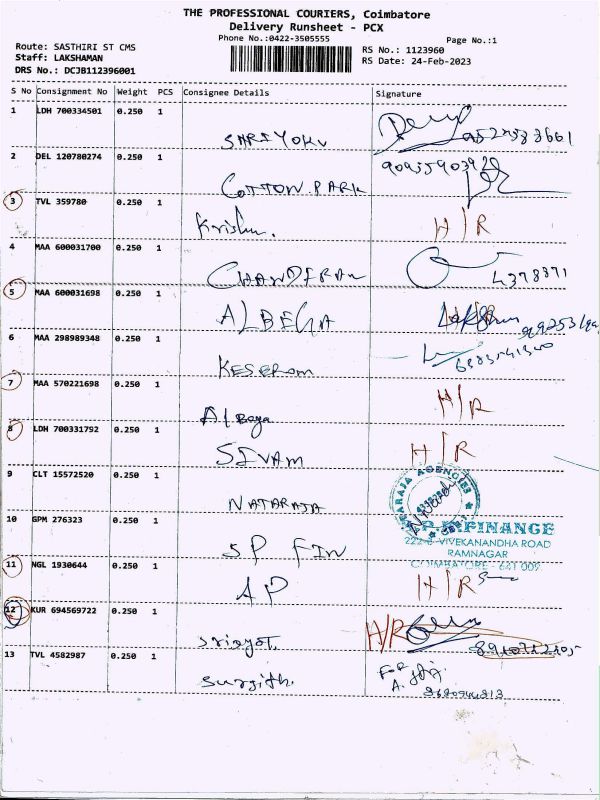 THE PROFESSIONAL COURIERS, Coimbatore
Delivery Runsheet - PCX
Phone No.:0422-3505555
Page No.:1
Route: SASTHIRI ST CMS
Staff: LAKSHAMAN
DRS No.: DCJB112396001
RS No.: 1123960
RS Date: 24-Feb-2023
S No Consignment No Weight PCS Consignee Details Signature
1 LDH 700334501 0.250 1
2 DEL 120780274 0.250 1
COTTON PARK
3 TVL 359780 0.250 1
Krishn. H/R
4 MAA 600031700 0.250 1
CHANDIRAN
5 MAA 600031698 0.250 1
ALBEGA
6 MAA 298989348 0.250 1
7 MAA 570221698 0.250 1
H/R
8 LDH 700331792 0.250 1
SIVAM H/R
9 CLT 15572520 0.250 1
NATARAJA
10 GPM 276323 0.250 1
SP FIN
FINANCE
VIVEKANANDHA ROAD
RAMNAGAR
COIMBATORE - 641 009
11 NGL 1930644 0.250 1
AP H/R
12 KUR 694569722 0.250 1
H/R
13 TVL 4582987 0.250 1
Surjith. For
A.